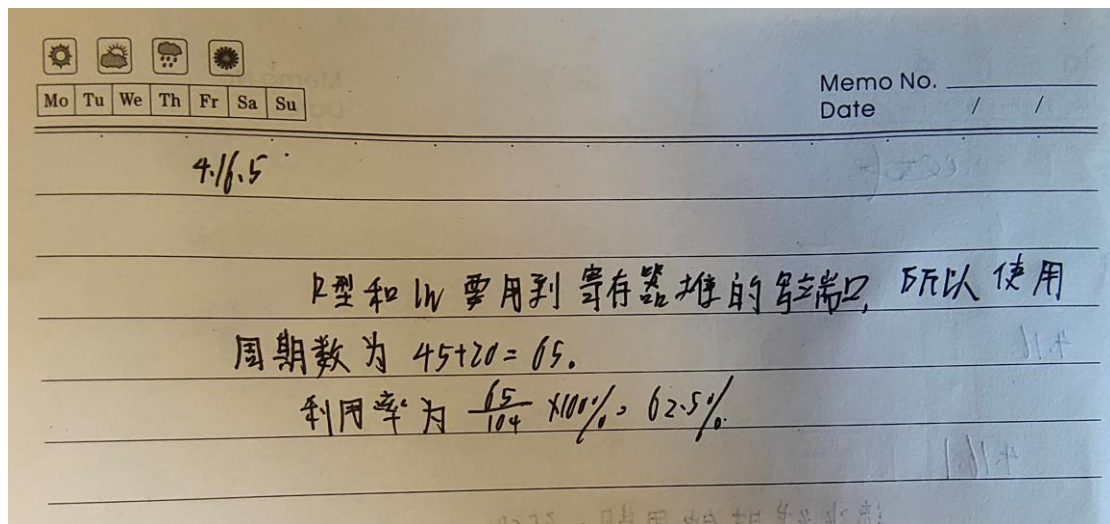 Mo Tu We Th Fr Sa Su
Memo No.
Date / /
4.16.5
R型和lw要用到寄存器堆的写端口,所以使用
周期数为 45+20=65。
利用率为 65/104 ×100%=62.5%.
4.16
4.16.1